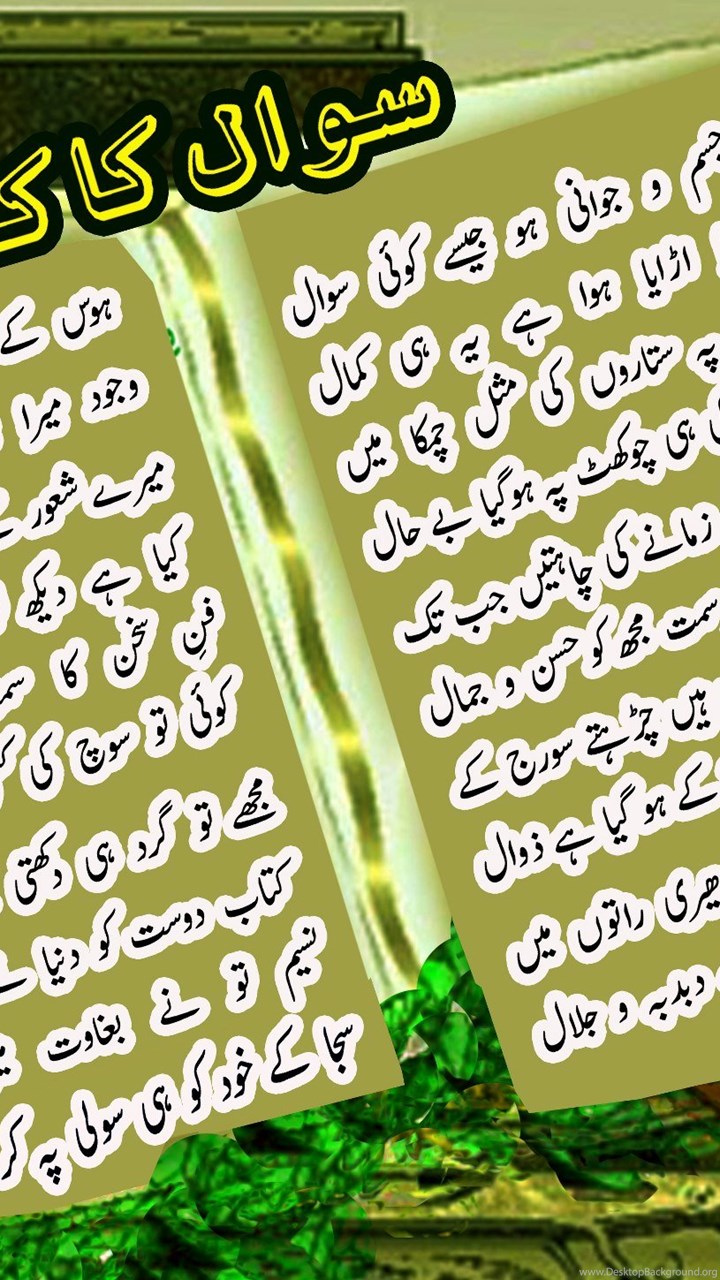 سوال کا ک
جسم و جوانی ہو جیسے کوئی سوال
اڑایا ہوا ہے یہ ہی کمال
پہ ستاروں کی مثل چمکا میں
ہی چوکھٹ پہ ہوگیا بے حال
زمانے کی چاہتیں جب تک
سمت مجھ کو حسن و جمال
ہیں چڑھتے سورج کے
کے ہو گیا ہے ذوال
راتوں میں
دبدبہ و جلال
ہوس کے
وجود میرا
میرے شعور
کیا ہے دیکھ
فنِ سخن کا
کوئی تو سوچ کی
مجھے تو گرد ہی دکھتی
کتاب دوست کو دنیا
نسیم تو نے بغاوت
سجا کے خود کو ہی سولی پہ کر
www.DesktopBackground.org